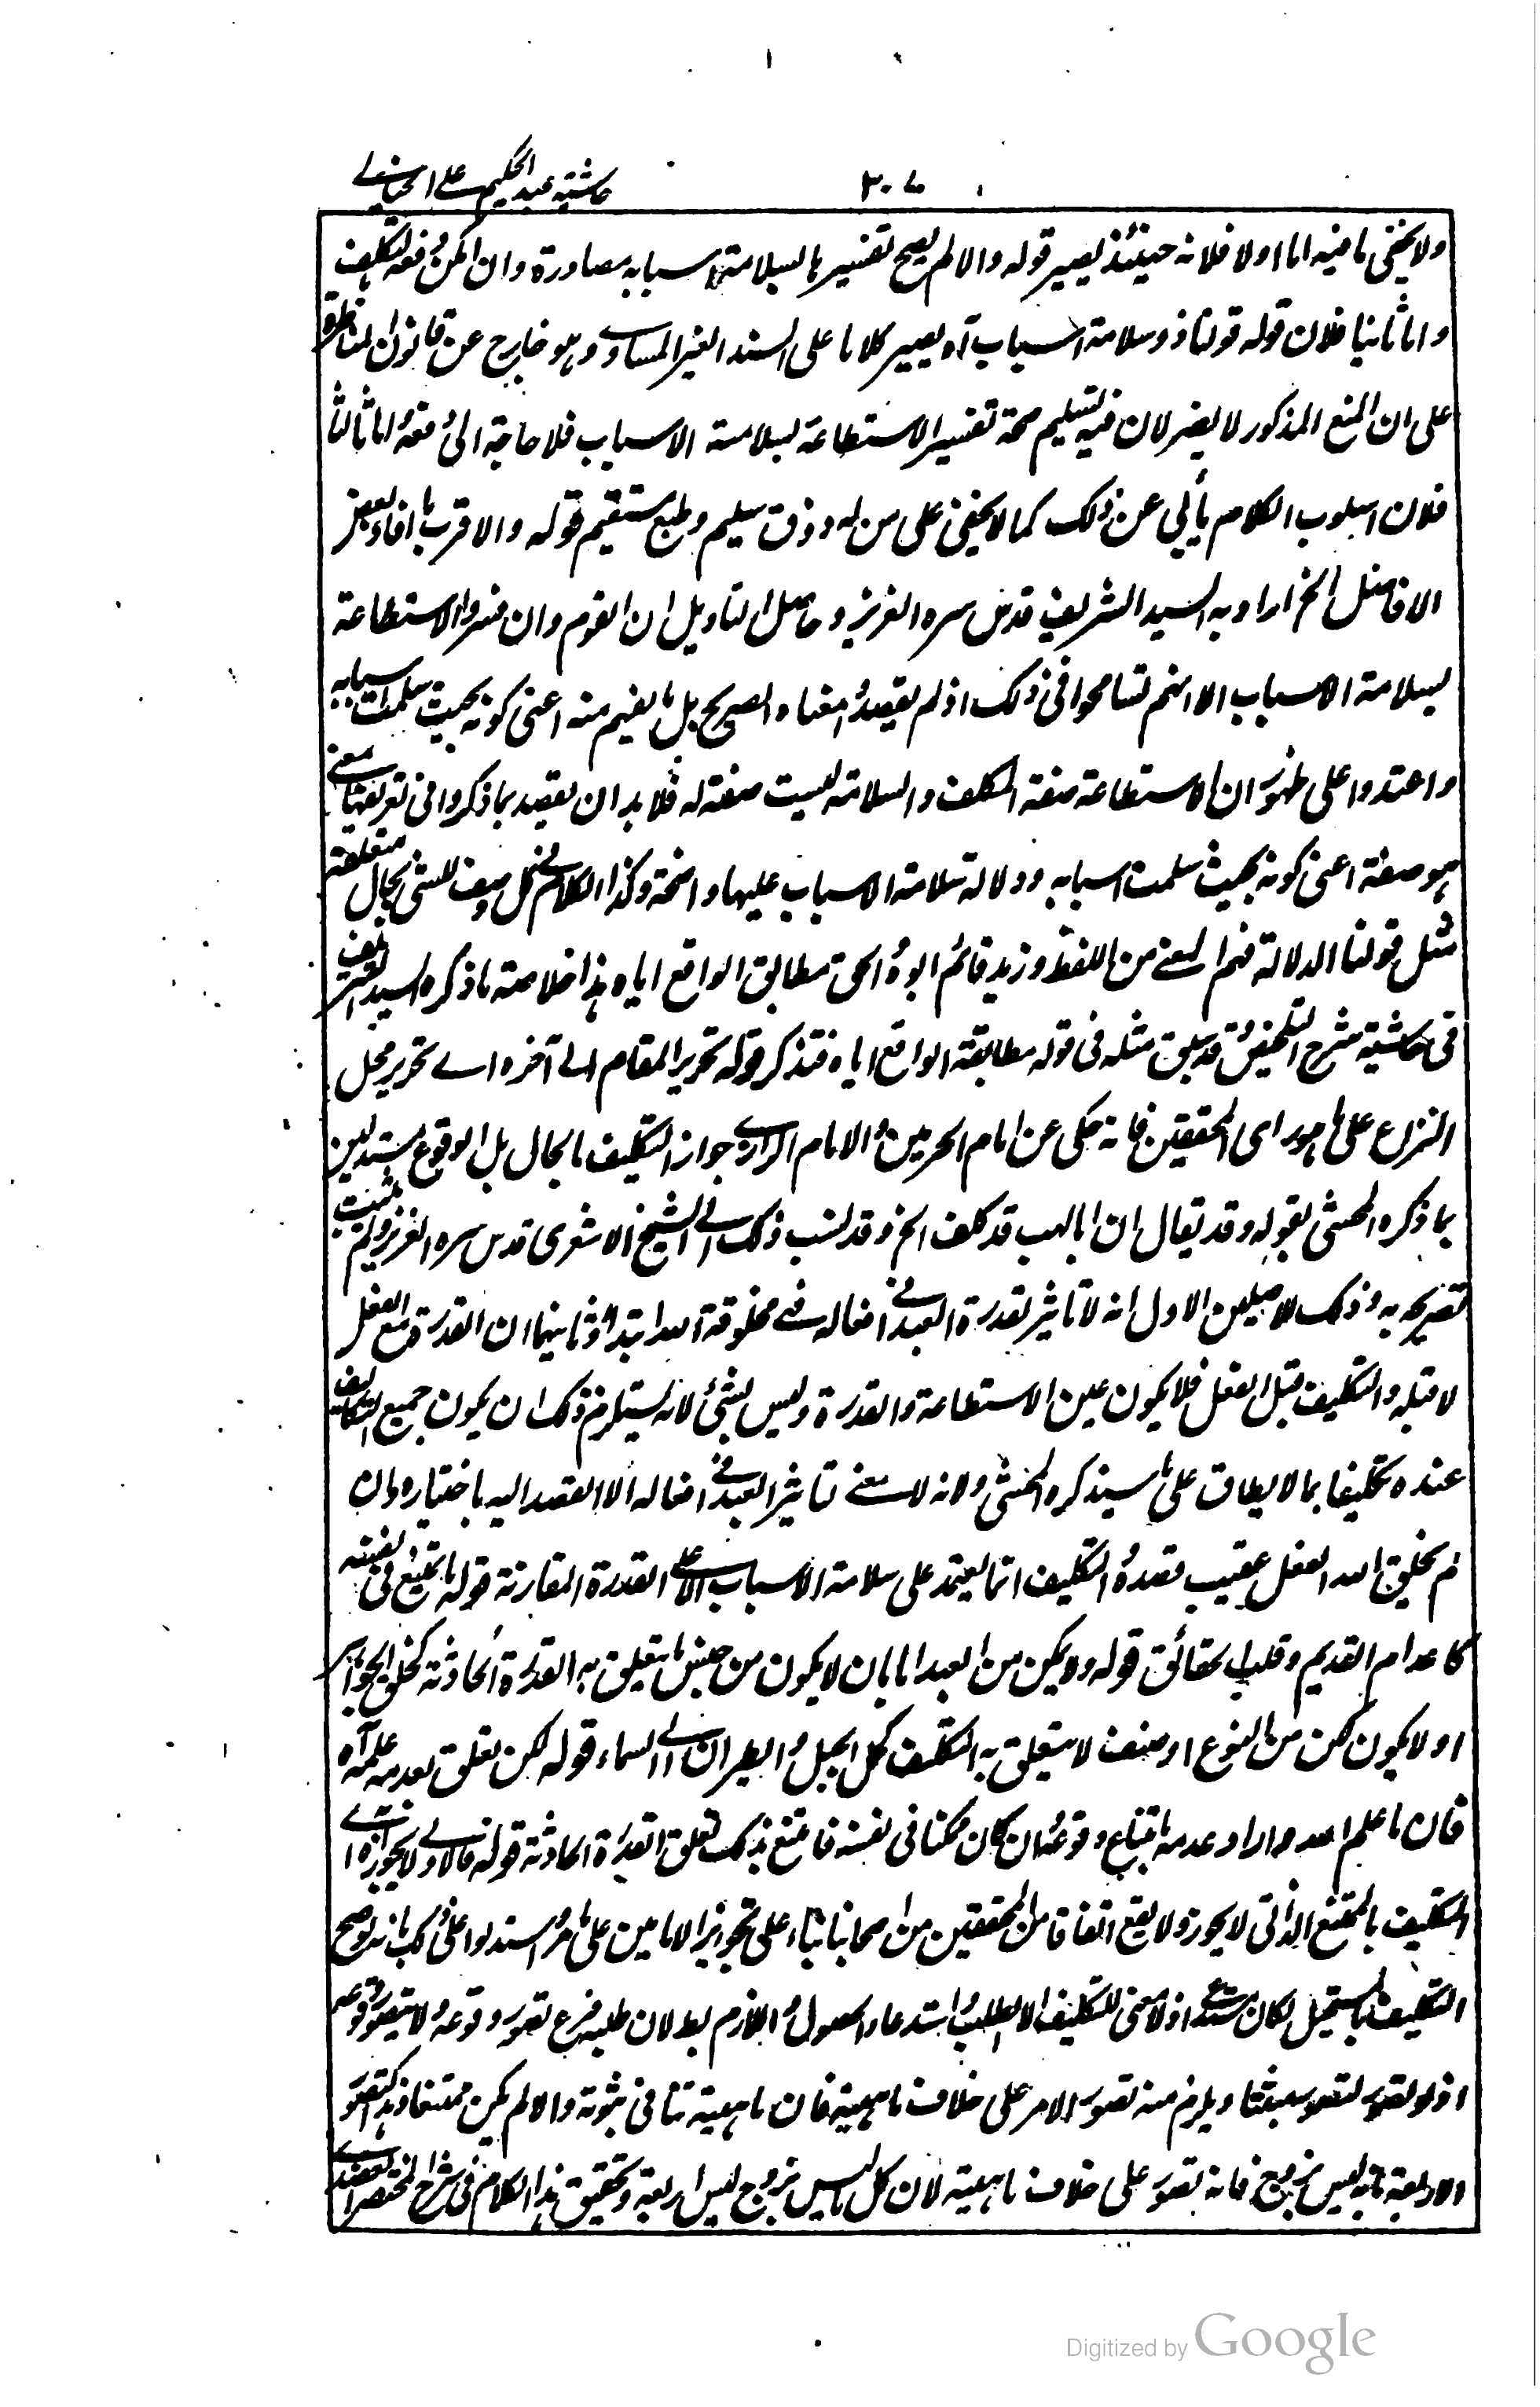 حاشية عبد الحكيم على الخيالى
٣٠٧
ولا يخفى ما فيه اما اولا فلانه حينئذ يصير قوله والا لم يصح تفسيرها بسلامة اسبابه مصادرة وان امكن دفعه بتكلف
واما ثانيا فلان قوله قولنا ذو سلامة اسباب آه يصير كلاما على السند الغير المساوى وهو خارج عن قانون المناظرة
على ان المنع المذكور لا يضر لان فيه تسليم صحة تفسير الاستطاعة بسلامة الاسباب فلا حاجة الى دفعه واما ثالثا
فلان اسلوب الكلام يأبى عن ذلك كما لا يخفى على من له ذوق سليم وطبع مستقيم قوله والاقرب ما افاده بعض
الافاضل الخ اراد به السيد الشريف قدس سره العزيز وحاصل التاويل ان القوم وان فسروا الاستطاعة
بسلامة الاسباب الا انهم تسامحوا فى ذلك اذ لم يقصدوا معناه الصريح بل ما يفهم منه اعنى كونه بحيث سلمت اسبابه
واعتمدوا على ظهور ان الاستطاعة صفة المكلف والسلامة ليست صفة له فلا بد ان يقصد بما ذكروا فى تعريفها معنى
هو صفة اعنى كونه بحيث سلمت اسبابه ودلالة سلامة الاسباب عليها واضحة وكذا الكلام فى كل وصف للشئ بحال متعلقه
مثل قولنا الدلالة فهم المعنى من اللفظ وزيد قائم ابوه والحق مطابق الواقع اياه هذا خلاصة ما ذكره السيد الشريف
فى حاشية شرح التلخيص وقد سبق مثله فى قوله مطابقة الواقع اياه فتذكر قوله تحرير المقام الى آخره اى تحرير محل
النزاع على ما هو راى المحققين فانه حكى عن امام الحرمين والامام الرازى جواز التكليف بالمحال بل الوقوع مستدلين
بما ذكره المحشى بقوله وقد يقال ان ابا لهب قد كلف الخ وقد نسب ذلك الى الشيخ الاشعرى قدس سره العزيز ولم يثبت
تصريحه به وذلك لاصلين الاول انه لا تاثير لقدرة العبد فى افعاله فهى مخلوقة لله ابتداء وثانيهما ان القدرة مع الفعل
لا قبله والتكليف قبل الفعل فلا يكون عين الاستطاعة والقدرة وليس بشئ لانه يستلزم ذلك ان يكون جميع التكاليف
عنده تكليفا بما لا يطاق على ما سيذكره المحشى ولانه لا معنى لتاثير العبد فى افعاله الا القصد اليه باختياره وان
لم يخلق الله الفعل عقيب قصده والتكليف انما يعتمد على سلامة الاسباب لا على القدرة المقارنة قوله ما يمتنع فى نفسه
كاعدام القديم وقلب الحقائق قوله ولا يمكن من العبد اما بان لا يكون من جنس ما يتعلق به القدرة الحادثة كخلق الجواهر
او لا يكون لكن من نوع او صنف لا يتعلق به التكليف كحمل الجبل والطيران الى السماء قوله لكن تعلق بعدمه علمه آه
فان ما علم الله واراد عدمه امتنع وقوعه وان كان ممكنا فى نفسه فامتنع بذلك تعلق القدرة الحادثة قوله فالاولى لا يجوز آه اى
التكليف بالممتنع الذاتى لا يجوز ولا يقع اتفاقا من المحققين من اصحابنا بناء على تجويز الامامين على ما مر واستدلوا على ذلك بانه لو صح
التكليف بالمستحيل لكان اذ لا معنى للتكليف الا الطلب واستدعاء الحصول واللازم بط لان طلبه فرع تصور وقوعه ولا يتصور وقوعه
اذ لو تصور لتصور مثبتا ويلزم منه تصور الامر على خلاف ماهيته فان ماهيته تنافى ثبوته والا لم يكن ممتنعا وهذا كتصور
الاربعة بانه ليس بزوج فانه تصور على خلاف ماهيته لان كل ما ليس بزوج ليس اربعة وتحقيق هذا الكلام فى شرح المختصر العضدى
Digitized by Google